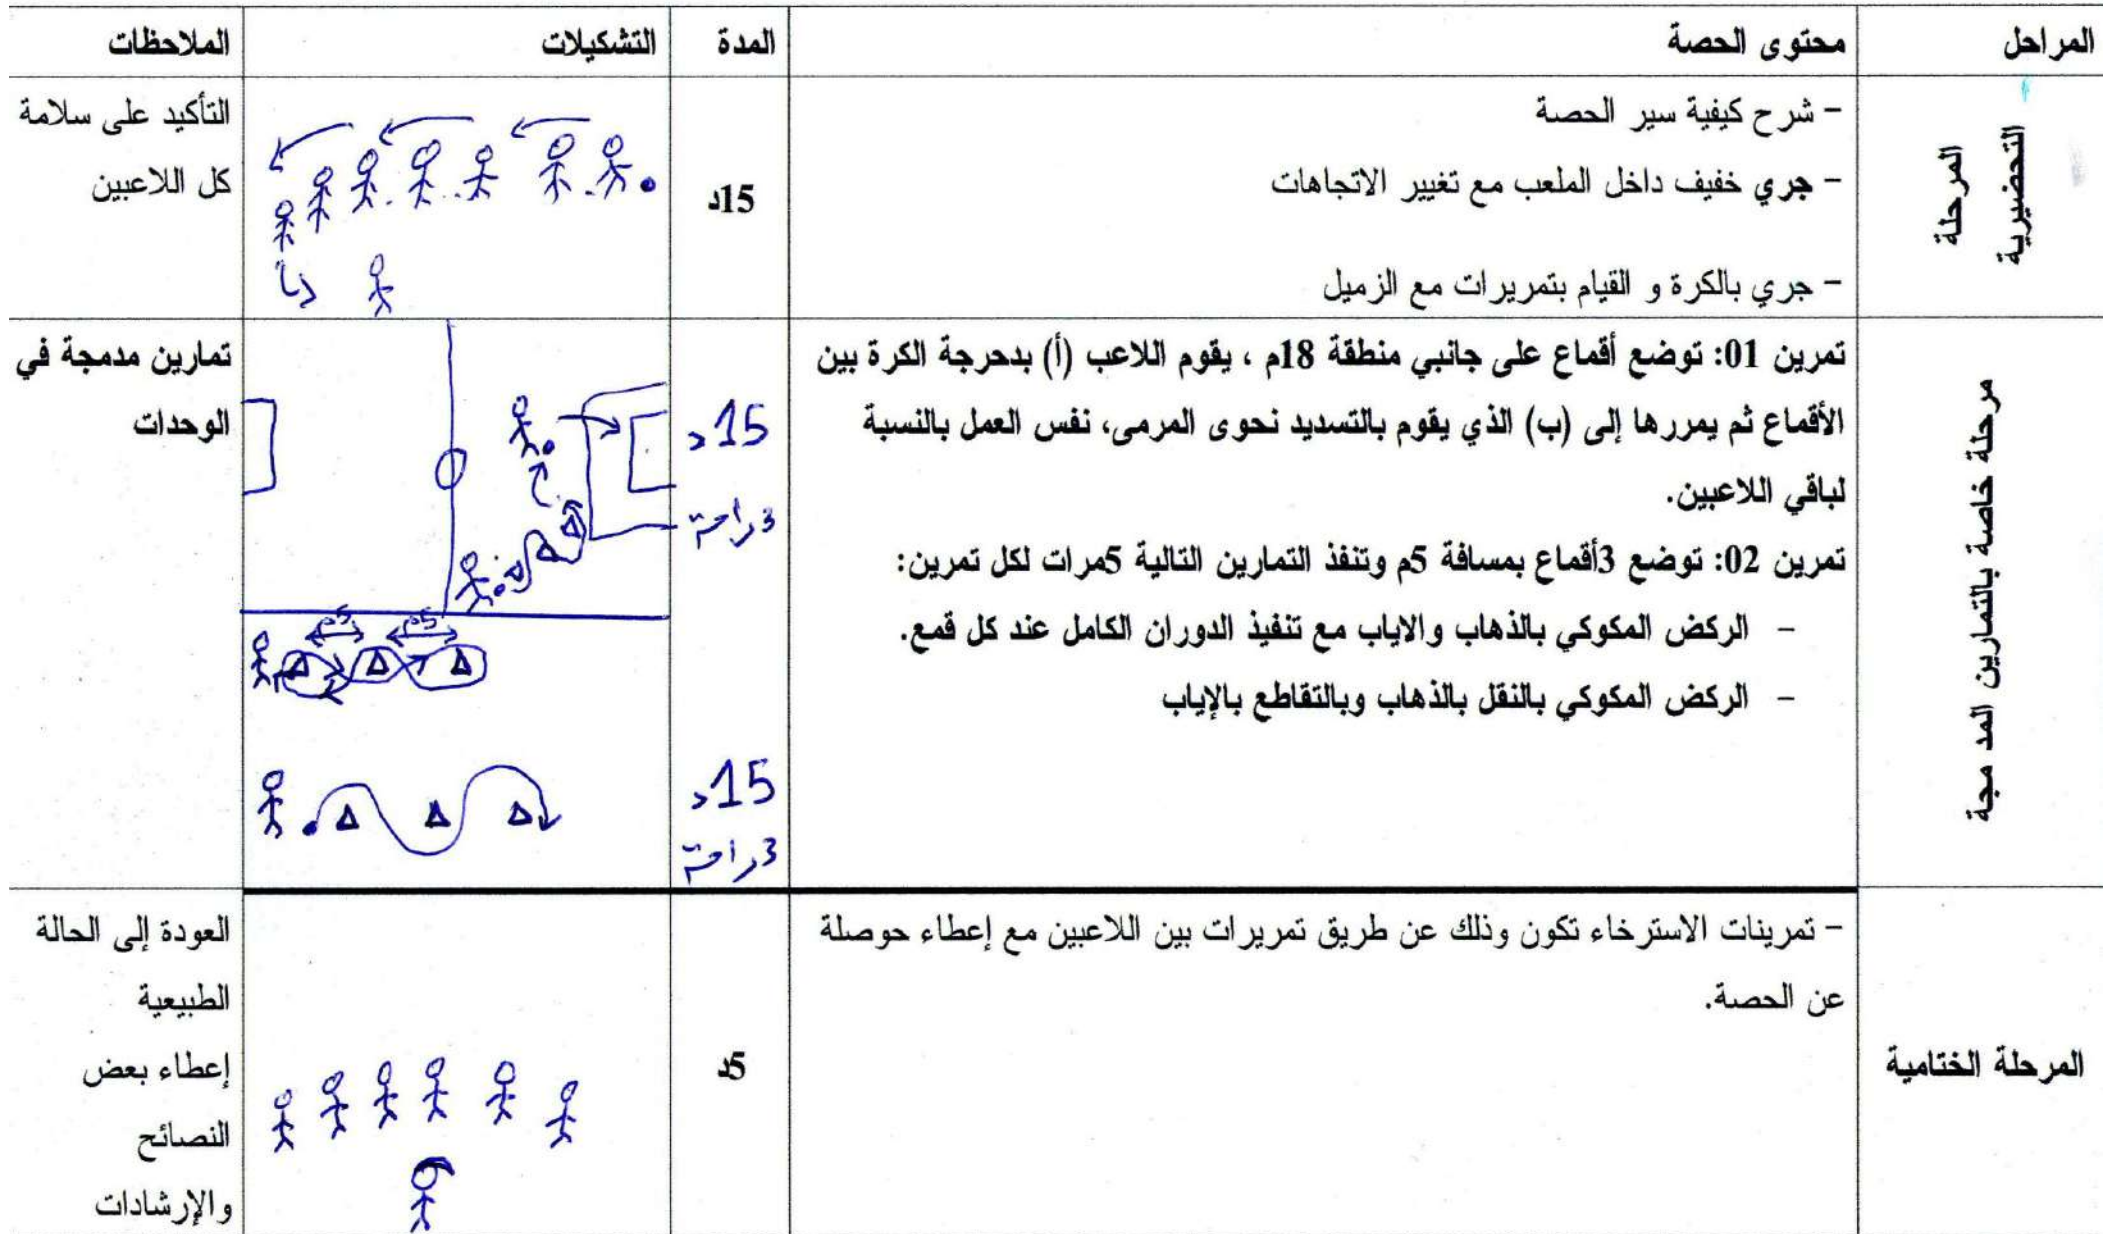 المراحل
محتوى الحصة
المدة
التشكيلات
الملاحظات
المرحلة
التحضيرية
- شرح كيفية سير الحصة
- جري خفيف داخل الملعب مع تغيير الاتجاهات
- جري بالكرة و القيام بتمريرات مع الزميل
15د
التأكيد على سلامة
كل اللاعبين
مرحلة خاصة بالتمارين المد مجة
تمرين 01: توضع أقماع على جانبي منطقة 18م ، يقوم اللاعب (أ) بدحرجة الكرة بين
الأقماع ثم يمررها إلى (ب) الذي يقوم بالتسديد نحوى المرمى، نفس العمل بالنسبة
لباقي اللاعبين.
تمرين 02: توضع 3أقماع بمسافة 5م وتنفذ التمارين التالية 5مرات لكل تمرين:
- الركض المكوكي بالذهاب والاياب مع تنفيذ الدوران الكامل عند كل قمع.
- الركض المكوكي بالنقل بالذهاب وبالتقاطع بالإياب
15د
3د راحة
15د
3د راحة
5م
5م
تمارين مدمجة في
الوحدات
المرحلة الختامية
- تمرينات الاسترخاء تكون وذلك عن طريق تمريرات بين اللاعبين مع إعطاء حوصلة
عن الحصة.
5د
العودة إلى الحالة
الطبيعية
إعطاء بعض
النصائح
والإرشادات